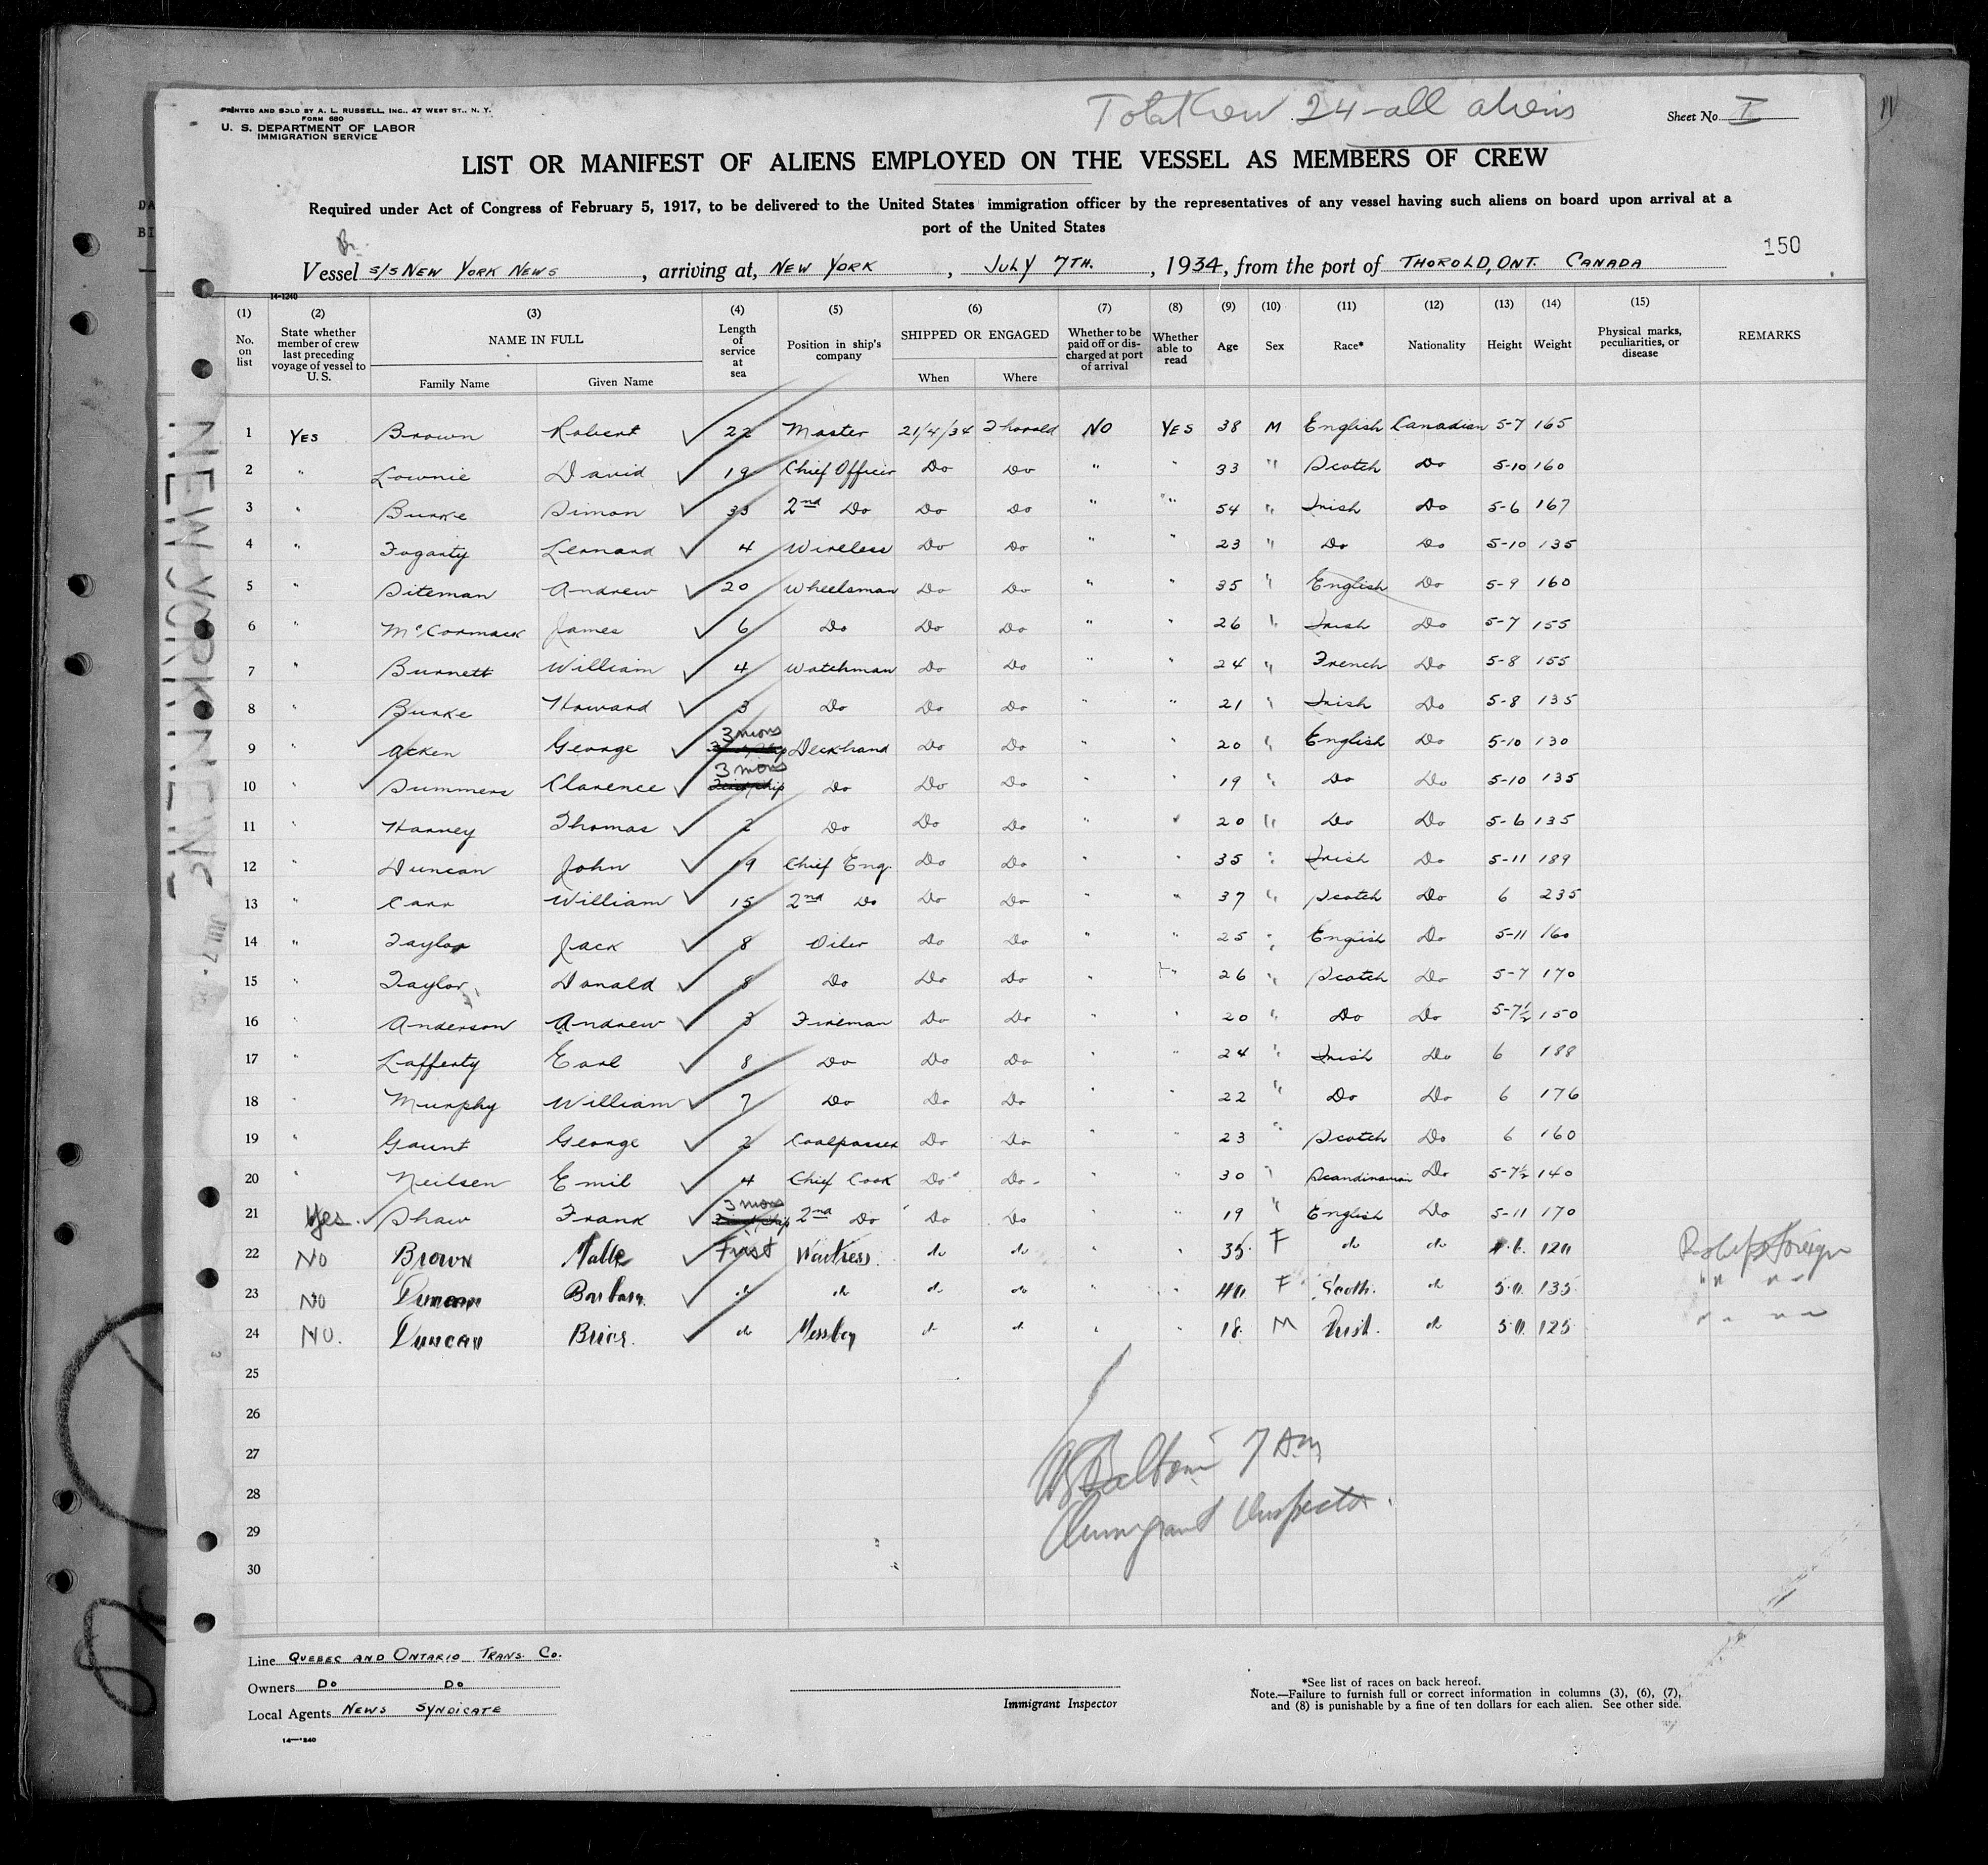 PRINTED AND SOLD BY A. L. RUSSELL, INC., 47 WEST ST., N. Y.
FORM 680
U. S. DEPARTMENT OF LABOR
IMMIGRATION SERVICE
Total Crew 24-all aliens
Sheet No I
LIST OR MANIFEST OF ALIENS EMPLOYED ON THE VESSEL AS MEMBERS OF CREW
Required under Act of Congress of February 5, 1917, to be delivered to the United States immigration officer by the representatives of any vessel having such aliens on board upon arrival at a
port of the United States
Br.
150
Vessel S/S NEW YORK NEWS, arriving at, NEW YORK, JULY 7TH., 1934, from the port of THOROLD, ONT. CANADA
14-1240
(1) No. on list (2) State whether member of crew last preceding voyage of vessel to U. S. (3) NAME IN FULL Family Name Given Name (4) Length of service at sea (5) Position in ship's company (6) SHIPPED OR ENGAGED When Where (7) Whether to be paid off or discharged at port of arrival (8) Whether able to read (9) Age (10) Sex (11) Race* (12) Nationality (13) Height (14) Weight (15) Physical marks, peculiarities, or disease REMARKS
1 YES Brown Robert 22 Master 21/4/34 Thorold NO YES 38 M English Canadian 5-7 165
2 " Lownie David 19 Chief Officer Do Do " " 33 " Scotch Do 5-10 160
3 " Burke Simon 33 2nd Do Do Do " " 54 " Irish Do 5-6 167
4 " Fogarty Leonard 4 Wireless Do Do " " 23 " Do Do 5-10 135
5 " Siteman Andrew 20 Wheelsman Do Do " " 35 " English Do 5-9 160
6 " McCormack James 6 Do Do Do " " 26 " Irish Do 5-7 155
7 " Burnett William 4 Watchman Do Do " " 24 " French Do 5-8 155
8 " Burke Howard 3 Do Do Do " " 21 " Irish Do 5-8 135
9 " Acken George 3 mons Deckhand Do Do " " 20 " English Do 5-10 130
10 " Summers Clarence 3 mons Do Do Do " " 19 " Do Do 5-10 135
11 " Harvey Thomas 2 Do Do Do " " 20 " Do Do 5-6 135
12 " Duncan John 19 Chief Eng. Do Do " " 35 " Irish Do 5-11 189
13 " Carr William 15 2nd Do Do Do " " 37 " Scotch Do 6 235
14 " Taylor Jack 8 Oiler Do Do " " 25 " English Do 5-11 160
15 " Taylor Donald 8 Do Do Do " " 26 " Scotch Do 5-7 170
16 " Anderson Andrew 3 Fireman Do Do " " 20 " Do Do 5-7½ 150
17 " Lafferty Earl 8 Do Do Do " " 24 " Irish Do 6 188
18 " Murphy William 7 Do Do Do " " 22 " Do Do 6 176
19 " Gaunt George 2 Coalpasser Do Do " " 23 " Scotch Do 6 160
20 " Neilsen Emil 4 Chief Cook Do Do " " 30 " Scandinavian Do 5-7½ 140
21 Yes Shaw Frank 3 mons 2nd Do Do Do " " 19 " English Do 5-11 170
22 NO Brown First Waitress do do " " 35 F do do 120
23 NO Duncan Barbara do do do do " " 40 F Scotch do 135
24 NO. Duncan do Messboy do do " " 18 M Irish do 125
25
26
27
28
29
30
7 AM
Immigrant Inspector.
NEW YORK NEWS
Line QUEBEC AND ONTARIO TRANS. CO.
Owners DO DO
Local Agents NEWS SYNDICATE
Immigrant Inspector
*See list of races on back hereof.
Note.—Failure to furnish full or correct information in columns (3), (6), (7),
and (8) is punishable by a fine of ten dollars for each alien. See other side.